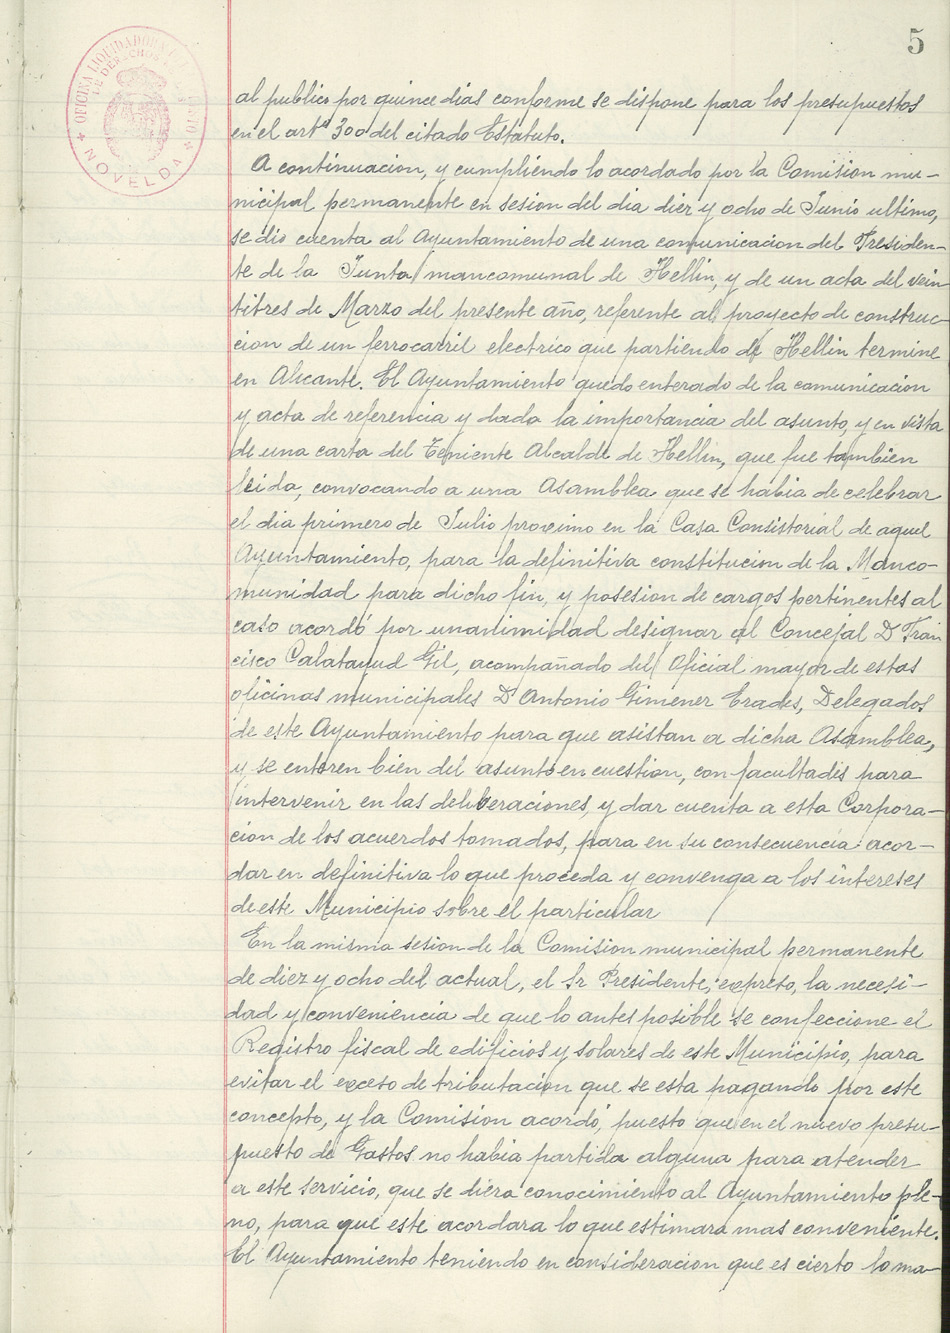 5
OFICINA LIQUIDADORA
DE DERECHOS
NOVELDA
al publico por quince dias conforme se dispone para los presupuestos
en el artº 300 del citado Estatuto.
A continuacion, y cumpliendo lo acordado por la Comision mu-
nicipal permanente en sesion del dia diez y ocho de Junio ultimo,
se dio cuenta al Ayuntamiento de una comunicacion del Presiden-
te de la Junta mancomunal de Hellin, y de un acta del vein
titres de Marzo del presente año, referente al proyecto de construc-
cion de un ferrocarril electrico que partiendo de Hellin termine
en Alicante. El Ayuntamiento quedo enterado de la comunicacion
y acta de referencia y dada la importancia del asunto, y en vista
de una carta del Teniente Alcalde de Hellin, que fue tambien
leida, convocando a una Asamblea que se habia de celebrar
el dia primero de Julio proximo en la Casa Consistorial de aquel
Ayuntamiento, para la definitiva constitucion de la Manco-
munidad para dicho fin, y posesion de cargos pertinentes al
caso acordó por unanimidad designar al Concejal D Fran
cisco Calatayud Gil, acompañado del Oficial mayor de estas
oficinas municipales D Antonio Gimenez Erades, Delegados
de este Ayuntamiento para que asistan a dicha Asamblea,
y se enteren bien del asunto en cuestion, con facultades para
intervenir en las deliberaciones, y dar cuenta a esta Corpora-
cion de los acuerdos tomados, para en su consecuencia acor-
dar en definitiva lo que proceda y convenga a los intereses
de este Municipio sobre el particular
En la misma sesion de la Comision municipal permanente
de diez y ocho del actual, el Sr Presidente, expreso, la necesi-
dad y conveniencia de que lo antes posible se confeccione el
Registro fiscal de edificios y solares de este Municipio, para
evitar el exceso de tributacion que se esta pagando por este
concepto, y la Comision acordó, puesto que en el nuevo presu-
puesto de Gastos no habia partida alguna para atender
a este servicio, que se diera conocimiento al Ayuntamiento ple-
no, para que este acordara lo que estimara mas conveniente.
El Ayuntamiento teniendo en consideracion que es cierto lo ma-